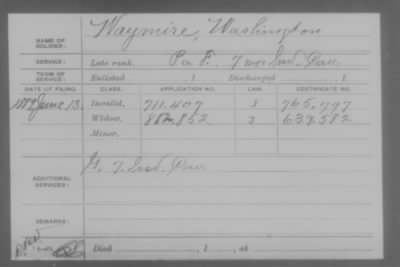 NAME OF SOLDIER: Waymire, Washington
SERVICE: Late rank, Co. F, 7 Reg't Ind. Cav.
TERM OF SERVICE: Enlisted , 1 Discharged , 1
DATE OF FILING. CLASS. APPLICATION NO. LAW. CERTIFICATE NO.
June 13. Invalid, 711.407 J 765.797
Widow, 812.852 J 637582
Minor,
ADDITIONAL SERVICES: G. 7 Ind. Cav.
REMARKS:
Died , 1 , at